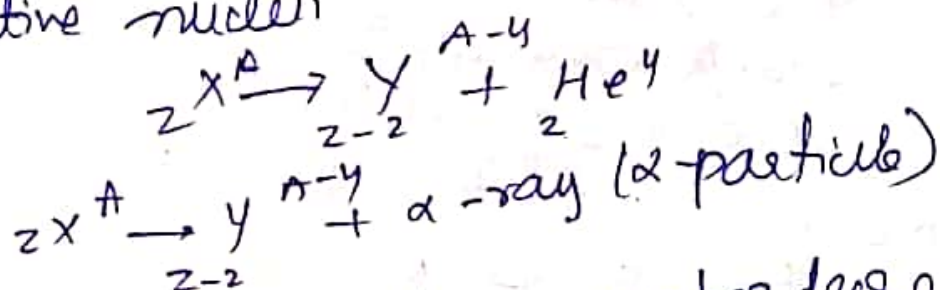 tive nuclei
zXᴬ → z-2Yᴬ⁻⁴ + ₂He⁴
zXᴬ → z-2Yᴬ⁻⁴ + α-ray (α-particle)